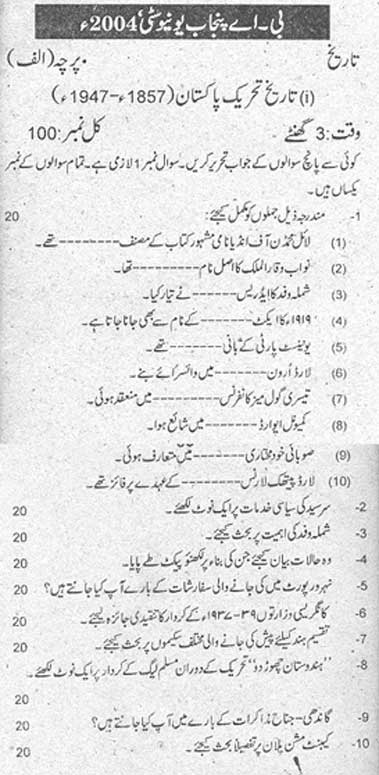 بی۔اے پنجاب یونیوسٹی 2004ء
تاریخ پرچہ (الف)
(i) تاریخ تحریک پاکستان (1857ء-1947ء)
وقت: 3 گھنٹے کل نمبر: 100
کوئی سے پانچ سوالوں کے جواب تحریر کریں۔ سوال نمبر 1 لازمی ہے۔ تمام سوالوں کے نمبر
یکساں ہیں۔
1- مندرجہ ذیل جملوں کو مکمل کیجئے: 20
(1) لائل محمڈن آف انڈیا نامی مشہور کتاب کے مصنف -------- تھے۔
(2) نواب وقار الملک کا اصل نام --------- تھا۔
(3) شملہ وفد کا ایڈریس ------- نے تیار کیا۔
(4) ۱۹۱۹ء کا ایکٹ ------- کے نام سے بھی جانا جاتا ہے۔
(5) یونینسٹ پارٹی کے بانی ------- تھے۔
(6) لارڈ ارون -------- میں وائسرائے بنے۔
(7) تیسری گول میز کانفرنس -------- میں منعقد ہوئی۔
(8) کمیونل ایوارڈ -------- میں شائع ہوا۔
(9) صوبائی خود مختاری -------- میں متعارف ہوئی۔
(10) لارڈ پیتھک لارنس -------- کے عہدے پر فائز تھے۔
2- سرسید کی سیاسی خدمات پر ایک نوٹ لکھئے۔ 20
3- شملہ وفد کی اہمیت پر بحث کیجئے۔ 20
4- وہ حالات بیان کیجئے جن کی بناء پر لکھنؤ پیکٹ طے پایا۔ 20
5- نہرو رپورٹ میں کی جانے والی سفارشات کے بارے آپ کیا جانتے ہیں؟ 20
6- کانگریسی وزارتوں ۳۹-۱۹۳۷ء کے کردار کا تنقیدی جائزہ لیجئے۔ 20
7- تقسیم ہند کیلئے پیش کی جانے والی مختلف سکیموں پر بحث کیجئے۔ 20
8- "ہندوستان چھوڑ دو" تحریک کے دوران مسلم لیگ کے کردار پر ایک نوٹ لکھئے۔
20
9- گاندھی-جناح مذاکرات کے بارے میں آپ کیا جانتے ہیں؟ 20
10- کیبنٹ مشن پلان پر تفصیلاً بحث کیجئے۔ 20